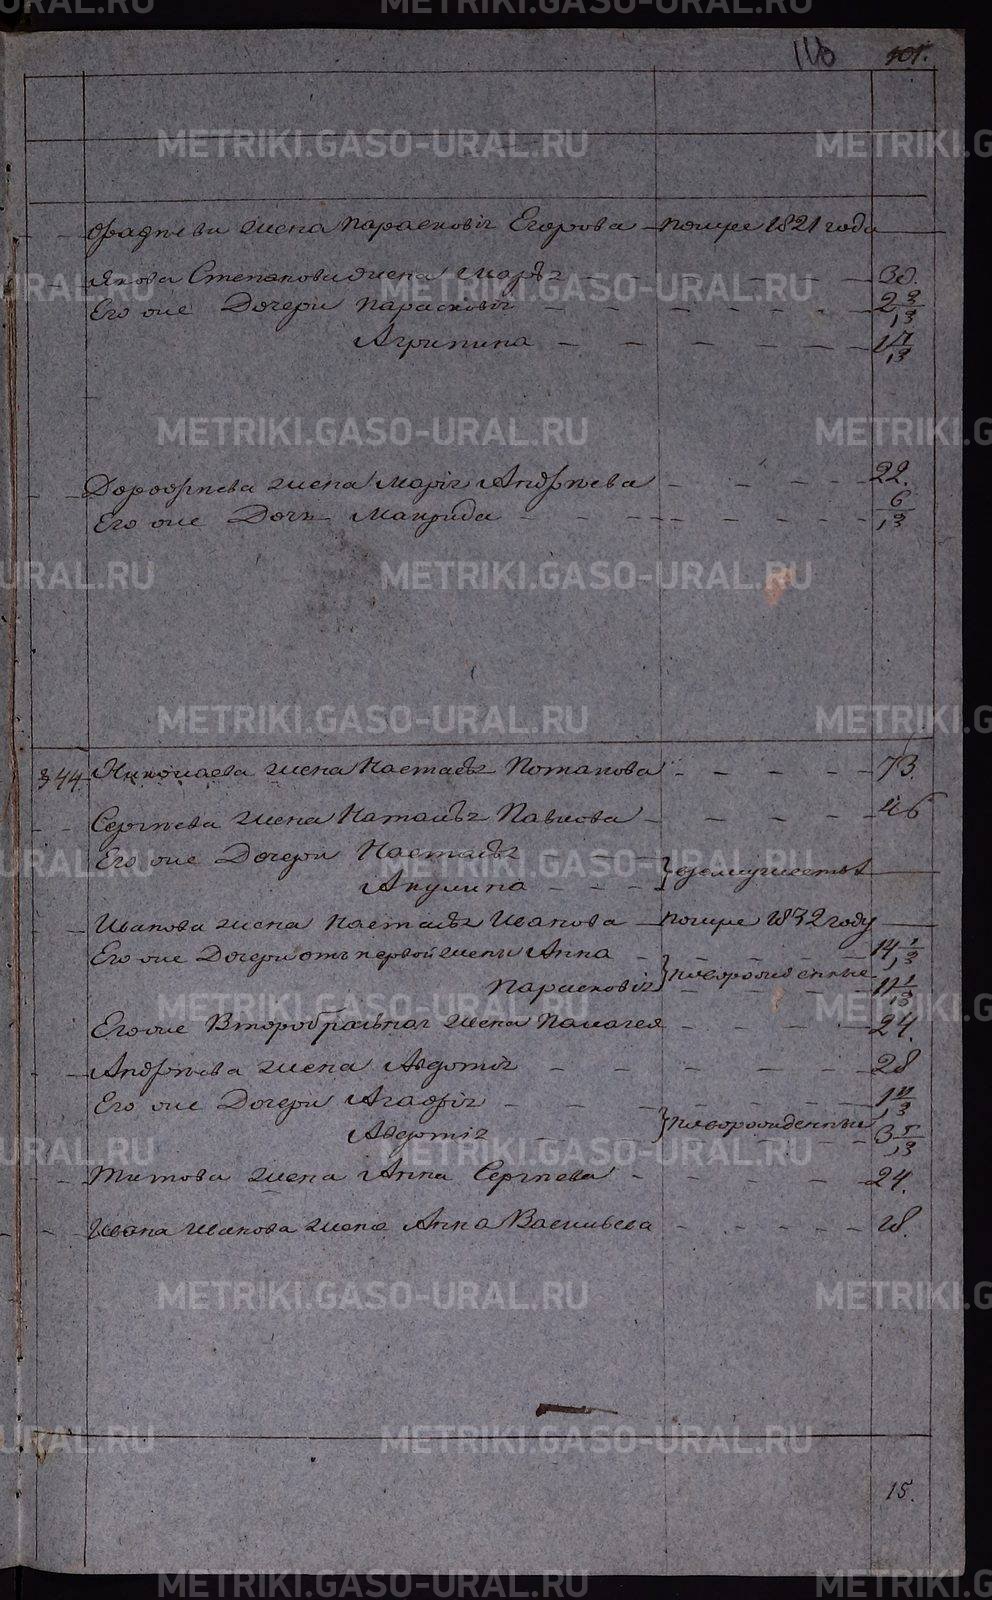 116 101.
Фадѣева жена Парасковія Егорова — помре 1821 года
Якова Степанова жена Марья — 30.
Его же Дочери Парасковія — 2 9/13
Агрипина — 1 7/13
Дорофѣева жена Марія Андрѣева — 22.
Его же Дочь Макрида — 6/13
344. Николаева жена Настасья Потапова — 73.
Сергѣева жена Наталья Павлова — 46
Его же Дочери Настасья
Акулина — } взамужествѣ
Иванова жена Настасья Иванова — помре 1832 году
Его же Дочери отъ первой жены Анна — 14 1/13
Парасковія } новорожденные 11 1/13
Его же Второбрачная жена Палагея — 24.
Андрѣева жена Авдотія — 28
Его же Дочери Агафія — 1 11/13
Авдотія } новорожденные 3 5/13
Титова жена Анна Сергѣева — 24.
Ивана Иванова жена Анна Васильева — 18.
15.
METRIKI.GASO-URAL.RU